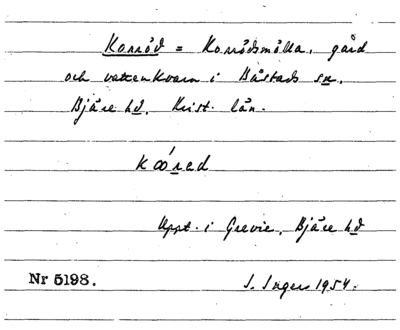 Korröd = Korrödsmölla, gård
och vattenkvarn i Båstads sn,
Bjäre hd, Krist. län.
kǿred
Uppt. i Grevie, Bjäre hd
Nr 5198.
I. Ingers 1954.